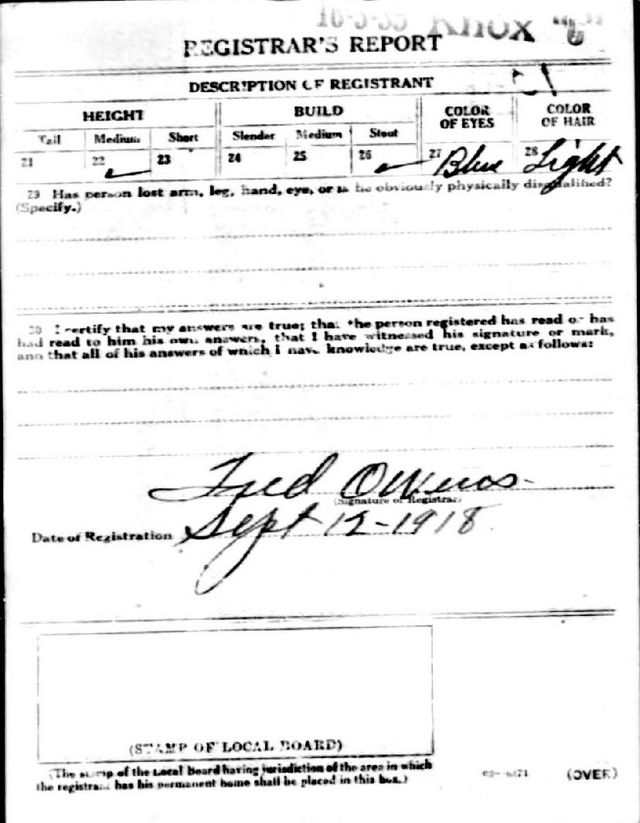 16-3-35 Knox "C"
REGISTRAR'S REPORT
DESCRIPTION OF REGISTRANT
HEIGHT BUILD COLOR OF EYES COLOR OF HAIR
Tall Medium Short Slender Medium Stout
21 22 ✓ 23 24 25 26 ✓ 27 Blue 28 Light
29 Has person lost arm, leg, hand, eye, or is he obviously physically disqualified?
(Specify.)
30 I certify that my answers are true; that the person registered has read or has
had read to him his own answers, that I have witnessed his signature or mark,
and that all of his answers of which I have knowledge are true, except as follows:
Fred
(Signature of Registrar)
Date of Registration Sept 12-1918
(STAMP OF LOCAL BOARD)
(The stamp of the Local Board having jurisdiction of the area in which
the registrant has his permanent home shall be placed in this box.)
(OVER)